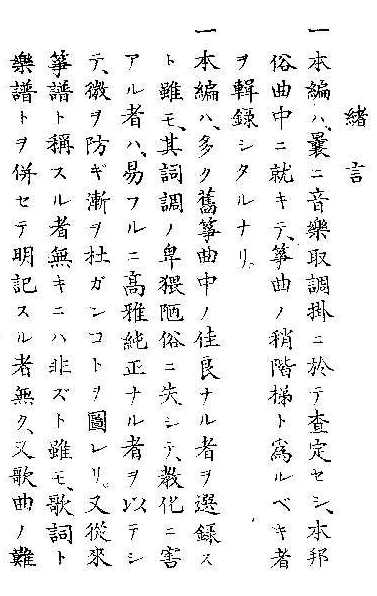 緒言
一本編ハ、曩ニ音樂取調掛ニ於テ査定セシ、本邦
俗曲中ニ就キテ、箏曲ノ稍階梯ト爲ルベキ者
ヲ輯錄シタルナリ。
一本編ハ、多ク舊箏曲中ノ佳良ナル者ヲ選錄ス
ト雖モ、其詞調ノ卑猥陋俗ニ失シテ、敎化ニ害
アル者ハ、易フルニ高雅純正ナル者ヲ以テシ
テ、微ヲ防ギ漸ヲ杜ガンコトヲ圖レリ。又從來
箏譜ト稱スル者無キニハ非ズト雖モ、歌詞ト
樂譜トヲ併セテ明記スル者無ク、又歌曲ノ難